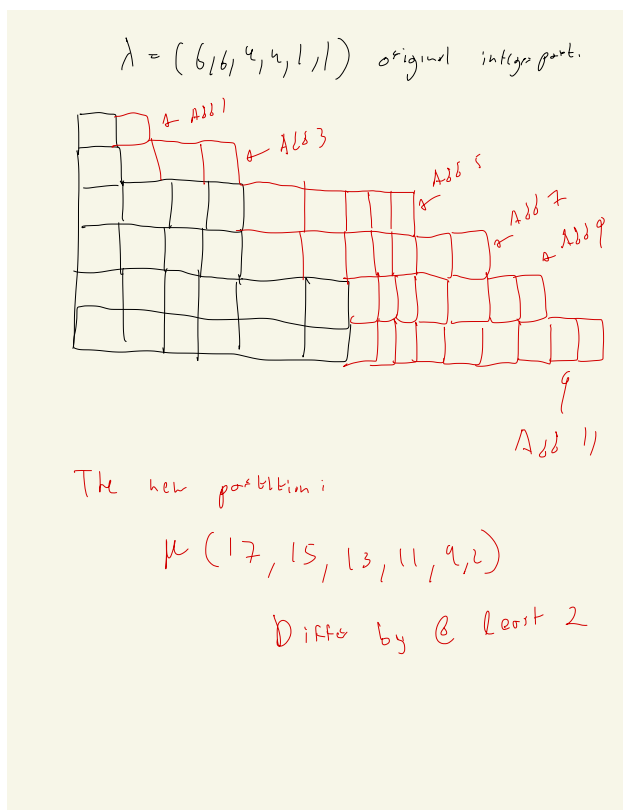 λ = (6,6,4,4,1,1) original integr part.
Add 1
Add 3
Add 5
Add 7
Add 9
Add 11
The new partition:
μ (17, 15, 13, 11, 9, 2)
Differ by @ least 2